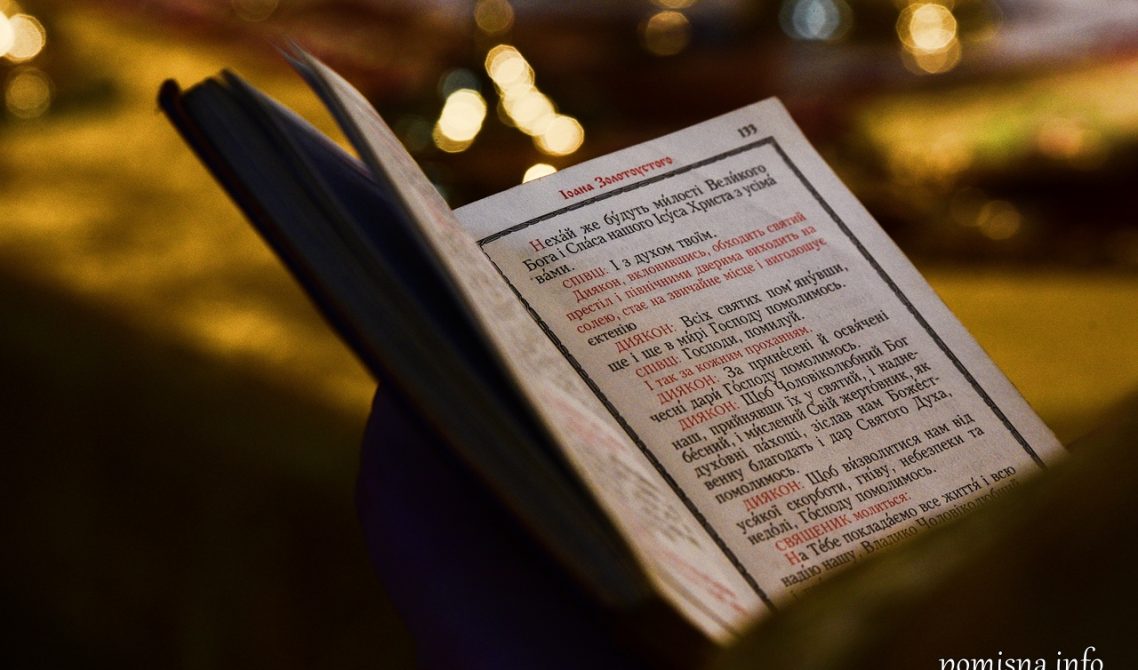 133
Іоана Золотоустого
Неха́й же бу́дуть ми́лості Вели́кого
Бога і Спа́са нашого Ісу́са Христа з усі́ма
ва́ми.
СПІВЦІ: І з духом твоїм.
Диякон, вклонившись, обходить святий
престіл і північними дверима виходить на
солею, стає на звичайне місце і виголошує
єктенію
ДИЯКОН: Всіх святих пом'яну́вши,
ще і ще в ми́рі Господу помолимось.
СПІВЦІ: Господи, помилуй.
І так за кожним проханням.
ДИЯКОН: За прине́сені й освя́чені
чесні дари́ Го́споду помолимось.
ДИЯКОН: Щоб Чоловіколю́бний Бог
наш, прийнявши їх у святий, і надне-
бе́сний, і ми́слений Свій же́ртовник, як
духо́вні па́хощі, зіслав нам Боже́ст-
венну благодать і дар Святого Духа,
помолимось.
ДИЯКОН: Щоб ви́зволитися нам від
уся́кої скорботи, гні́ву, небезпеки та
недо́лі, Го́споду помолимось.
СВЯЩЕНИК молиться:
На Те́бе поклада́ємо все життя́ і всю
наді́ю нашу, Владико Чоловіколюбний
pomisna.info